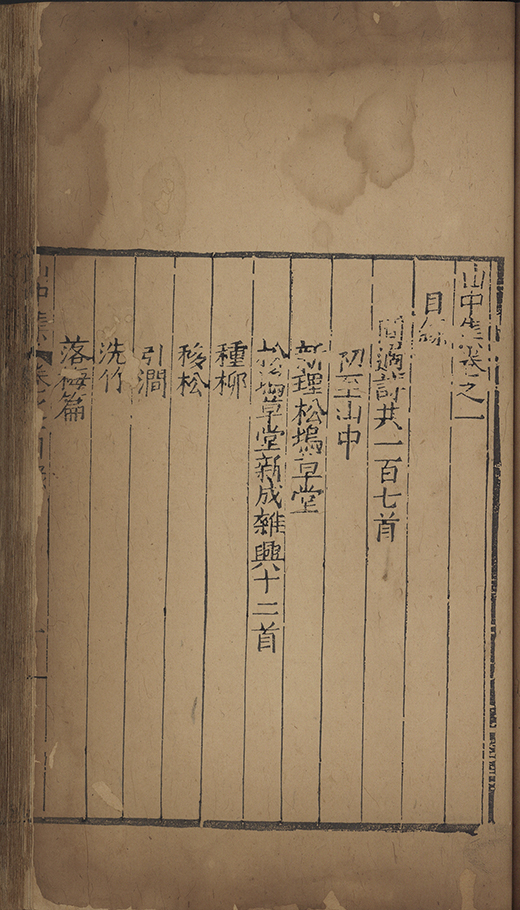 山中集卷之一
目錄
閒適詩共一百七首
初至山中
新理松塢草堂
松塢草堂新成雜興十二首
種柳
移松
引澗
洗竹
落梅篇
山中集卷之一目錄